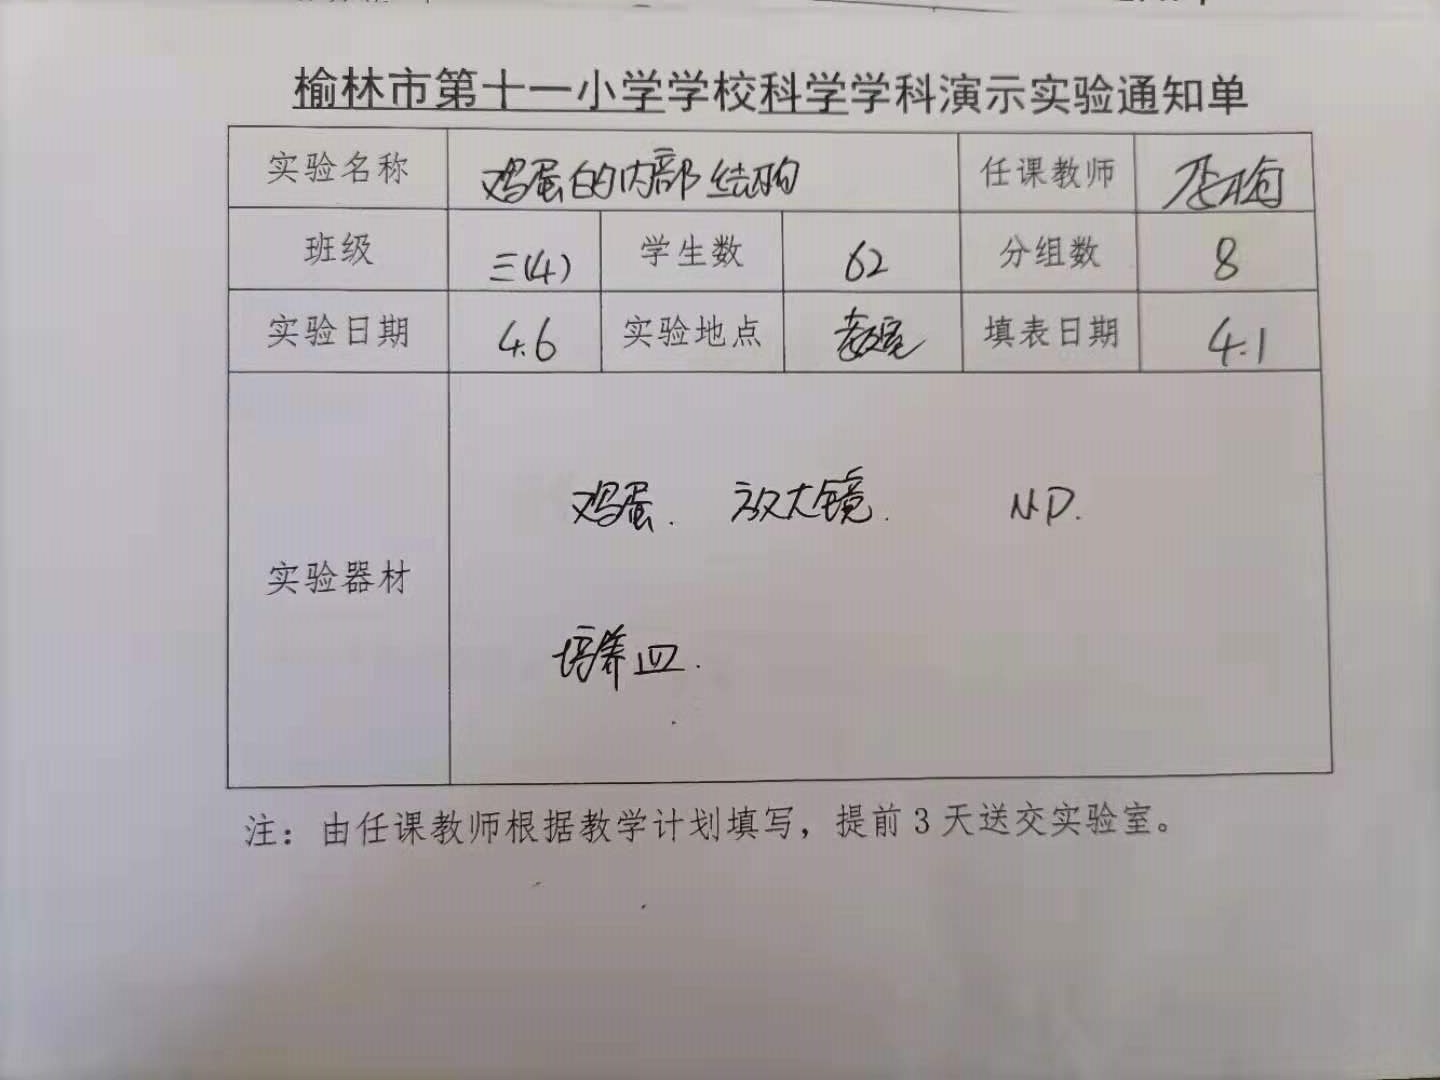 榆林市第十一小学学校科学学科演示实验通知单
实验名称 鸡蛋的内部结构 任课教师
班级 三(4) 学生数 62 分组数 8
实验日期 4.6 实验地点 教室 填表日期 4.1
鸡蛋. 放大镜.
实验器材
培养皿.
注：由任课教师根据教学计划填写，提前3天送交实验室。